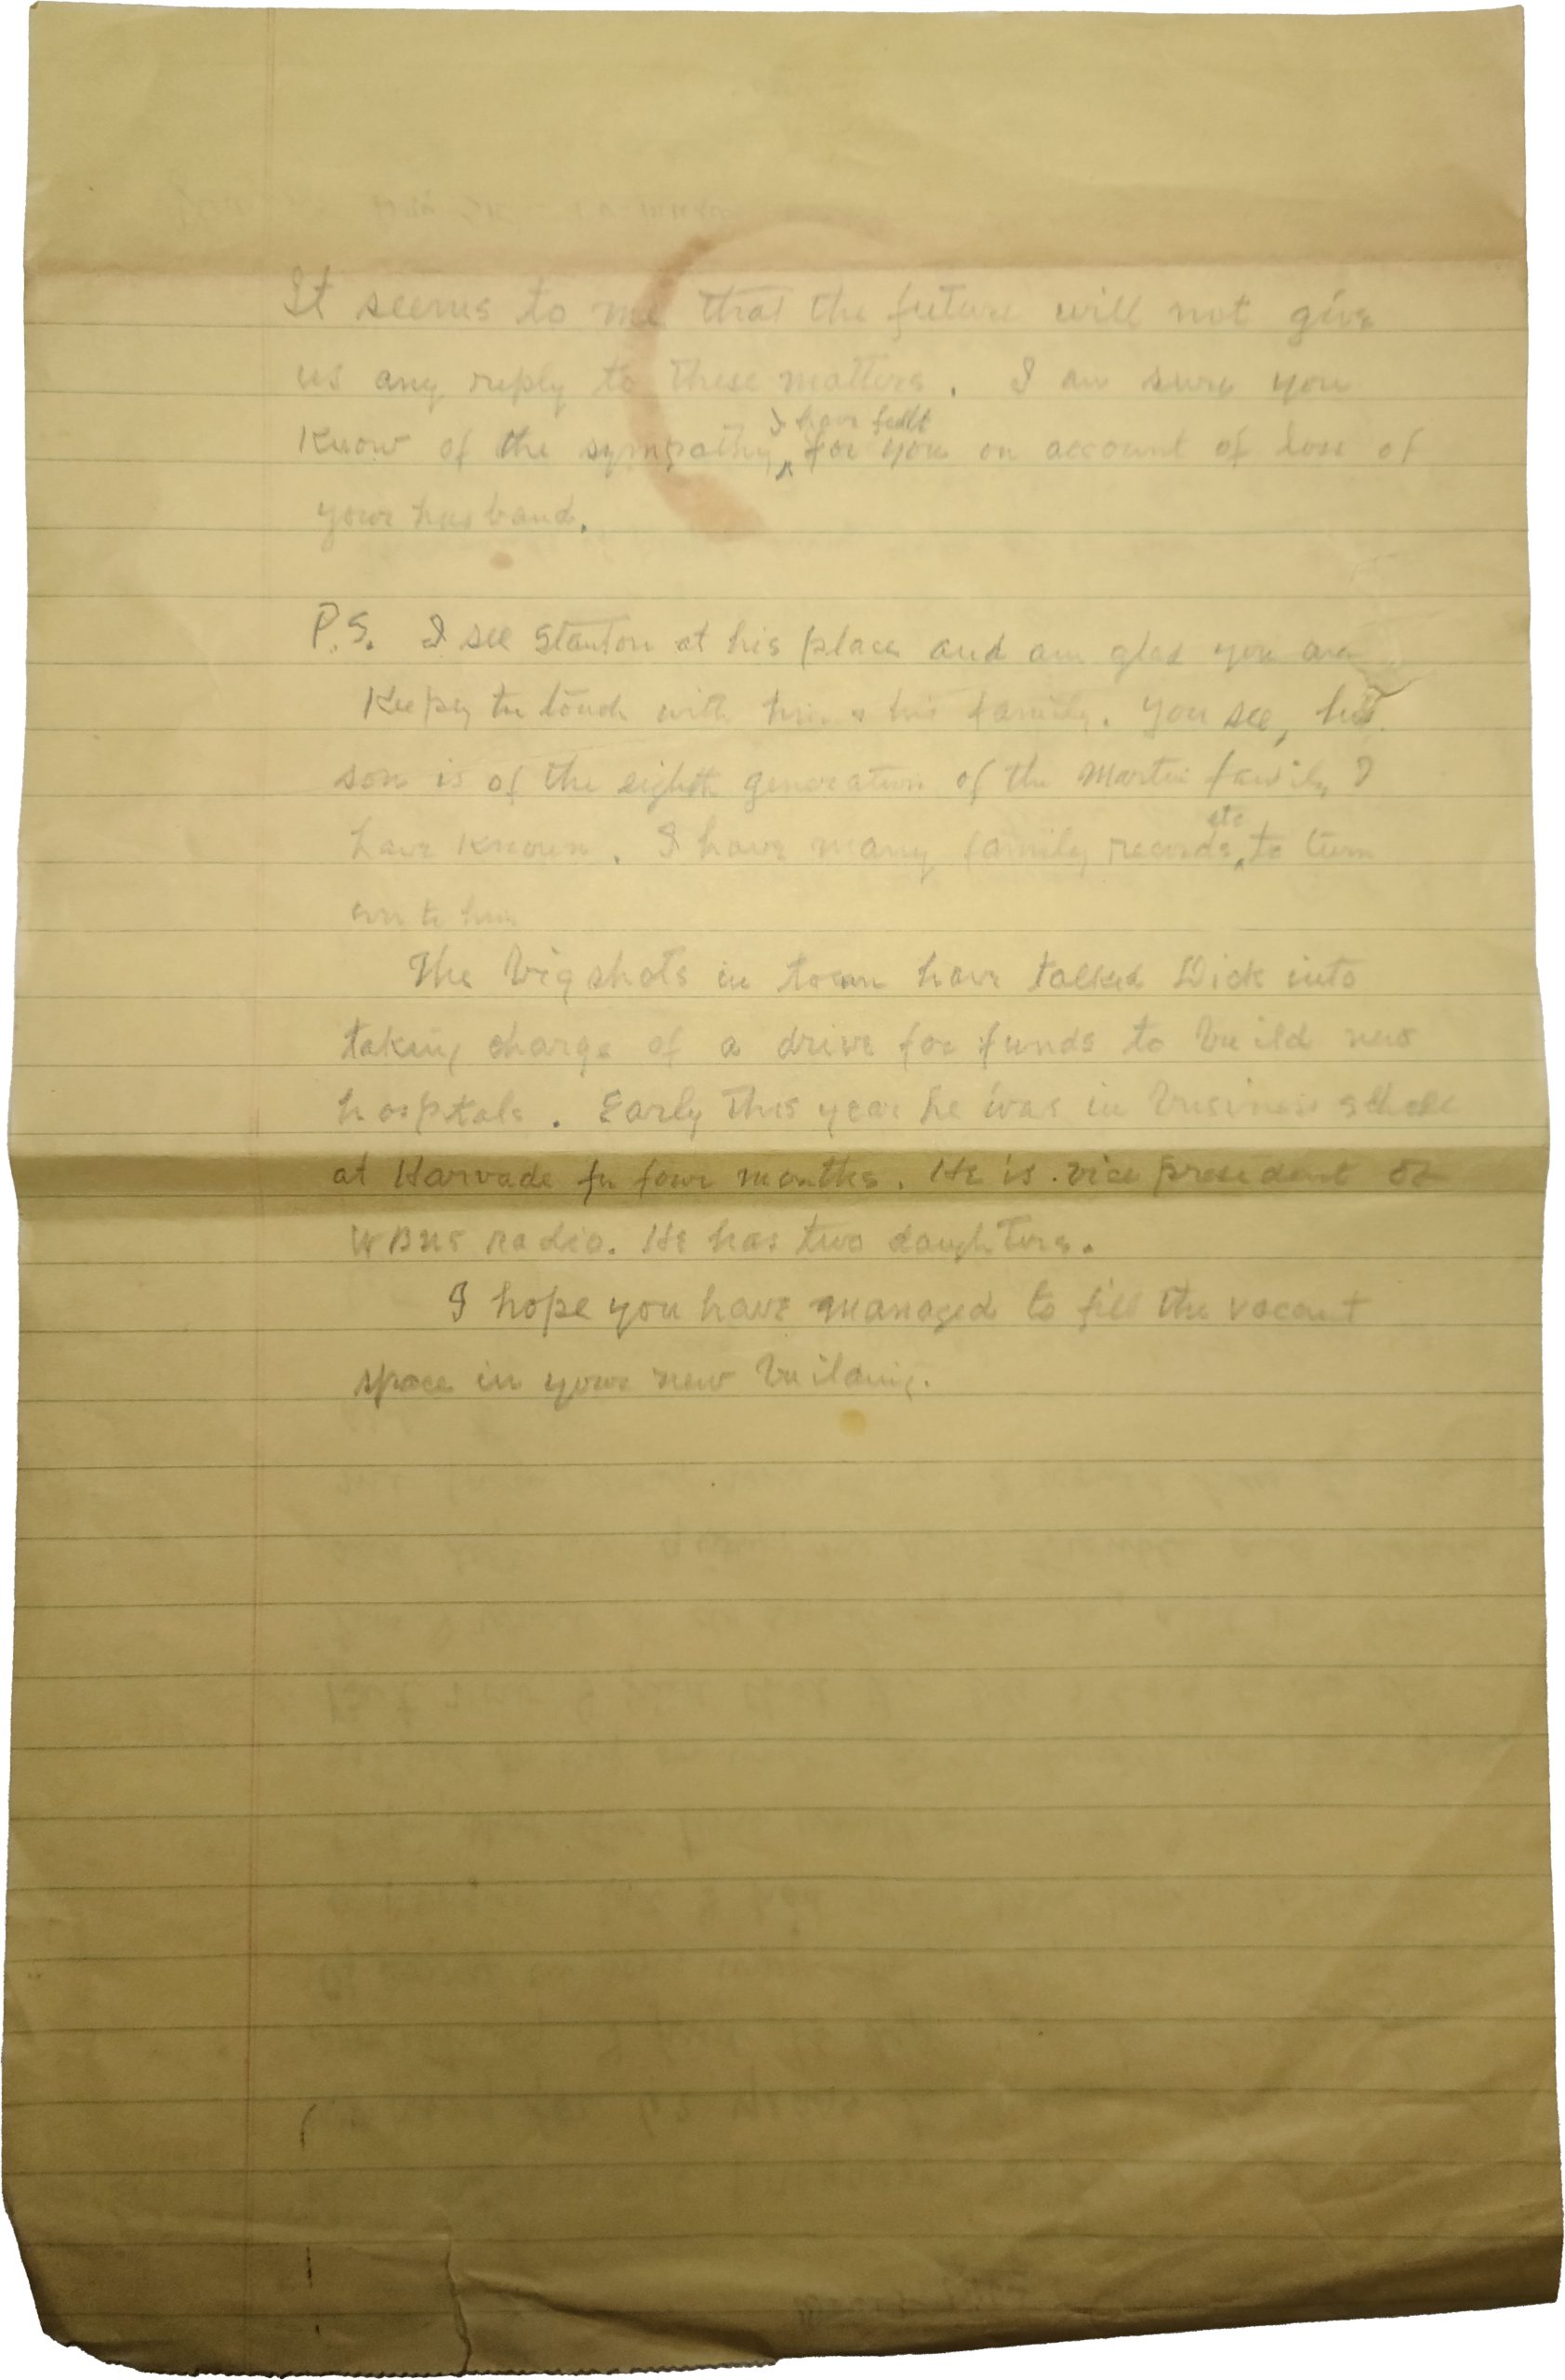 It seems to me that the future will not give
us any reply to these matters. I am sure you
I have fealt
know of the sympathy ^ for you on account of loss of
your husband.
P.S. I see Stanton at his place and am glad you are
Keepg in touch with him & his family. You see, his
son is of the eighth generation of the Martin family I
etc
have known. I have many family records ^ to turn
over to him
The big shots in town have talked Dick into
taking charge of a drive for funds to build new
hosptals. Early this year he was in business school
at Harvade for four months. He is vice president of
WBNS radio. He has two daughters.
I hope you have managed to fill the vacant
space in your new building.